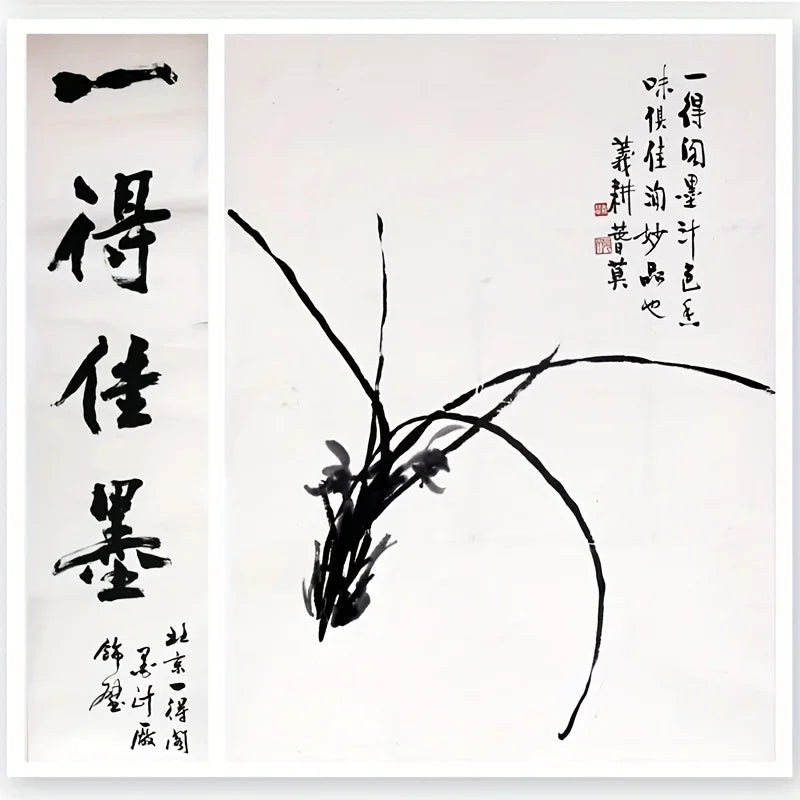 一得佳墨
北京一得阁
墨汁廠
飾壁
一得阁墨汁色香
味俱佳洵妙品也
義耕